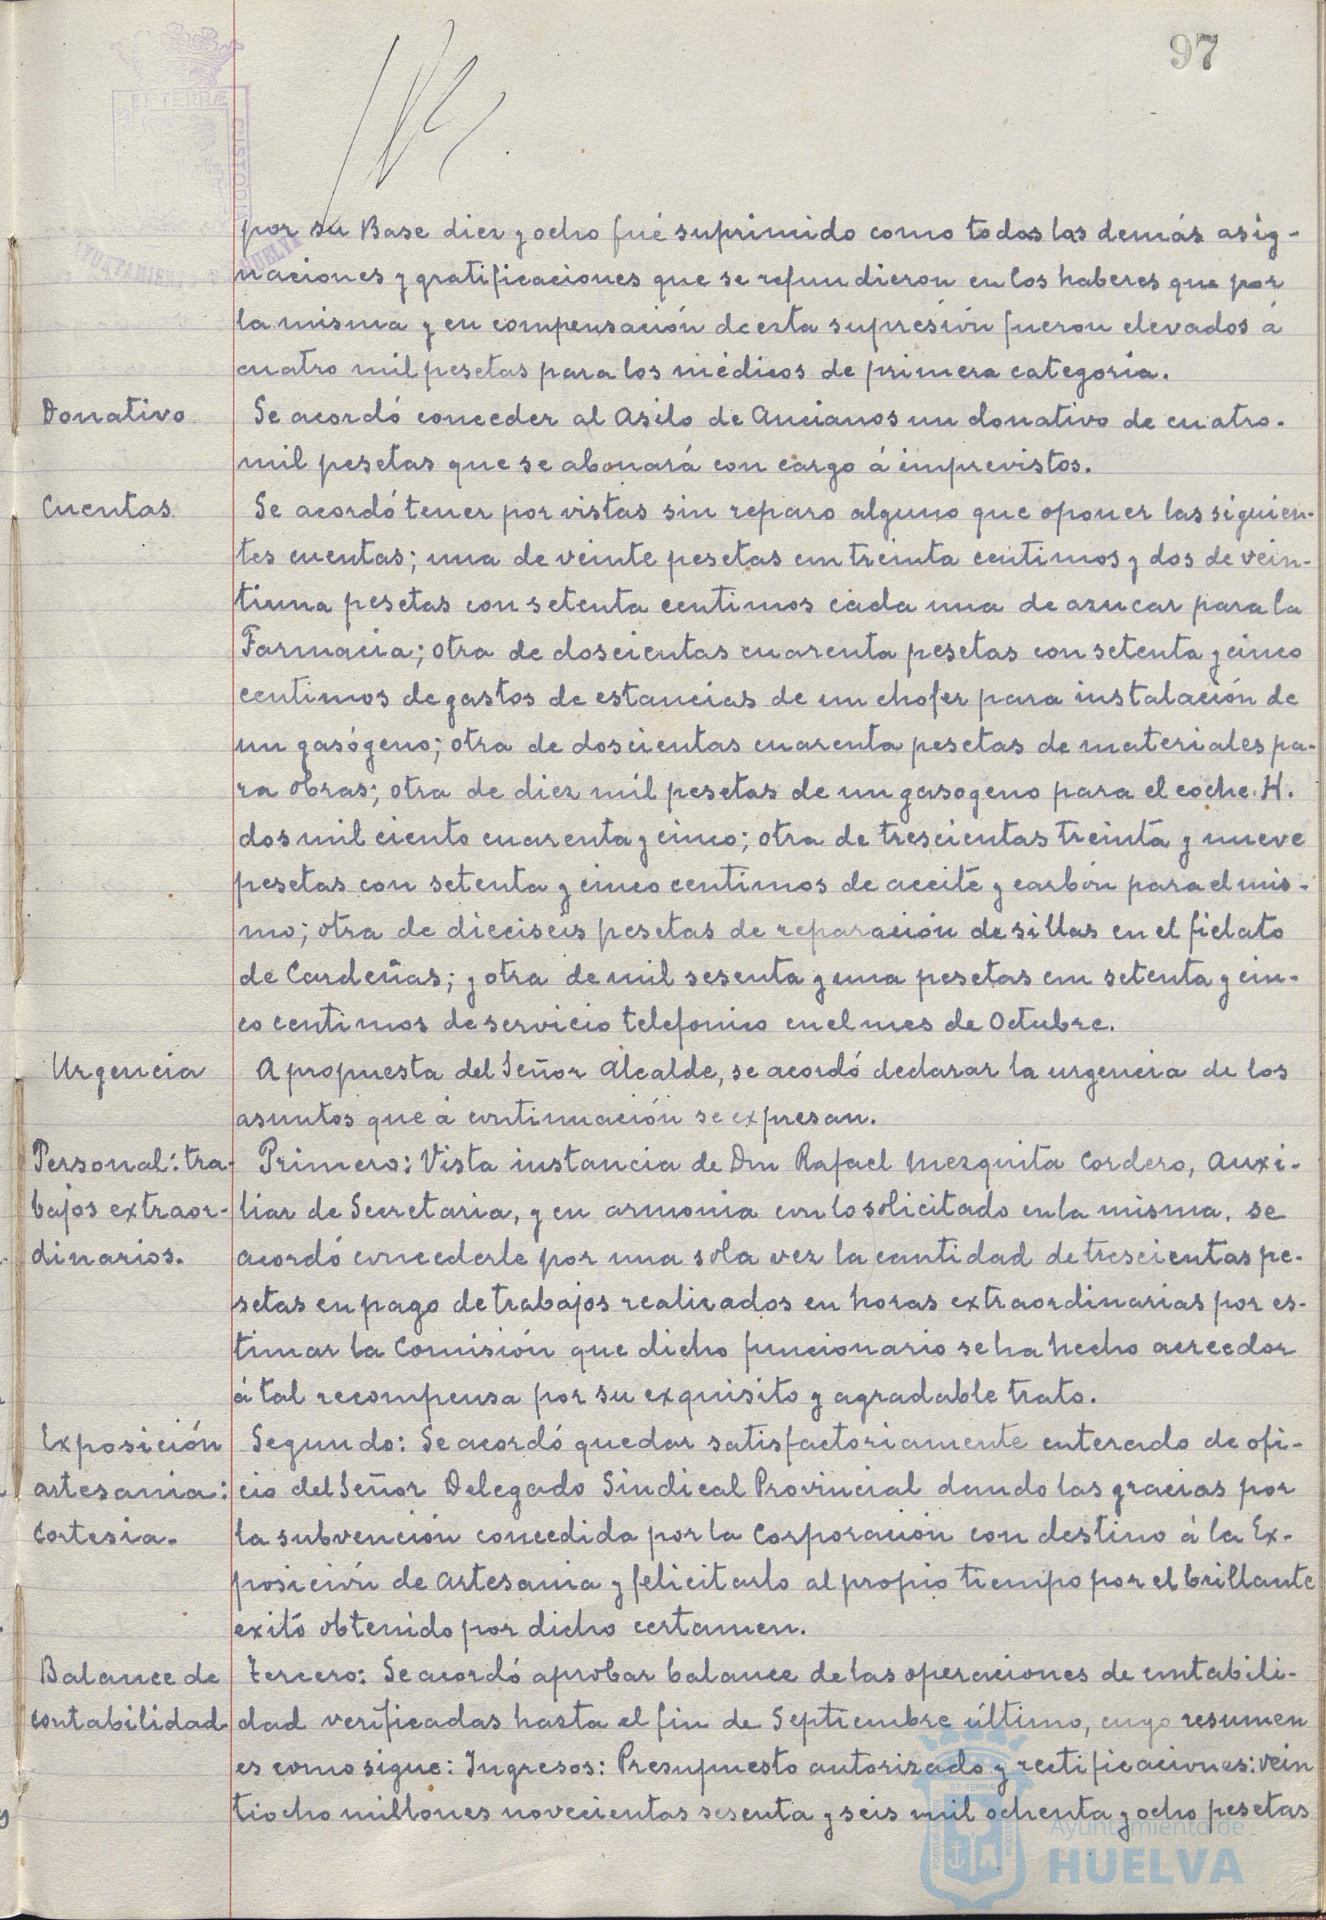 97
ET TERRÆ
CUSTODIA
AYUNTAMIENTO DE HUELVA
por su Base diez y ocho fué suprimido como todas las demás asig-
naciones y gratificaciones que se refundieron en los haberes que por
la misma y en compensación de esta supresión fueron elevados á
cuatro mil pesetas para los médicos de primera categoria.
Donativo
Se acordó conceder al Asilo de Ancianos un donativo de cuatro
mil pesetas que se abonará con cargo á imprevistos.
Cuentas
Se acordó tener por vistas sin reparo alguno que oponer las siguien-
tes cuentas; una de veinte pesetas con treinta centimos y dos de vein-
tiuna pesetas con setenta centimos cada una de azucar para la
Farmacia; otra de doscientas cuarenta pesetas con setenta y cinco
centimos de gastos de estancias de un chofer para instalación de
un gasógeno; otra de doscientas cuarenta pesetas de materiales pa-
ra obras; otra de diez mil pesetas de un gasogeno para el coche H.
dos mil ciento cuarenta y cinco; otra de trescientas treinta y nueve
pesetas con setenta y cinco centimos de aceite y carbón para el mis-
mo; otra de dieciseis pesetas de reparación de sillas en el fielato
de Cardeñas; y otra de mil sesenta y una pesetas con setenta y cin-
co centimos de servicio telefonico en el mes de Octubre.
Urgencia
A propuesta del Señor Alcalde, se acordó declarar la urgencia de los
asuntos que á continuación se expresan.
Personal: tra-
bajos extraor-
dinarios.
Primero: Vista instancia de Don Rafael Mezquita Cordero, Auxi-
liar de Secretaria, y en armonia con lo solicitado en la misma, se
acordó concederle por una sola vez la cantidad de trescientas pe-
setas en pago de trabajos realizados en horas extraordinarias por es-
timar la Comisión que dicho funcionario se ha hecho acreedor
á tal recompensa por su exquisito y agradable trato.
Exposición
artesania:
Cortesia.
Segundo: Se acordó quedar satisfactoriamente enterado de ofi-
cio del Señor Delegado Sindical Provincial dando las gracias por
la subvención concedida por la Corporación con destino á la Ex-
posición de Artesania y felicitarlo al propio tiempo por el brillante
exitó obtenido por dicho certamen.
Balance de
contabilidad
Tercero: Se acordó aprobar balance de las operaciones de contabili-
dad verificadas hasta el fin de Septiembre último, cuyo resumen
es como sigue: Ingresos: Presupuesto autorizado y rectificaciones: vein
tiocho millones novecientas sesenta y seis mil ochenta y ocho pesetas
Ayuntamiento de
HUELVA